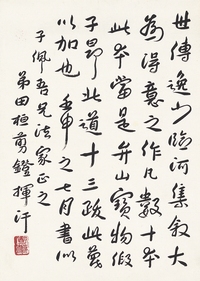 世傳逸少臨河集敘大
為得意之作凡數十本
此本當是井山寶物假
子昂此道十三跋此蔑
以加也 壬申之七月書似
子佩吾兄法家正之
弟田桓剪鐙揮汗